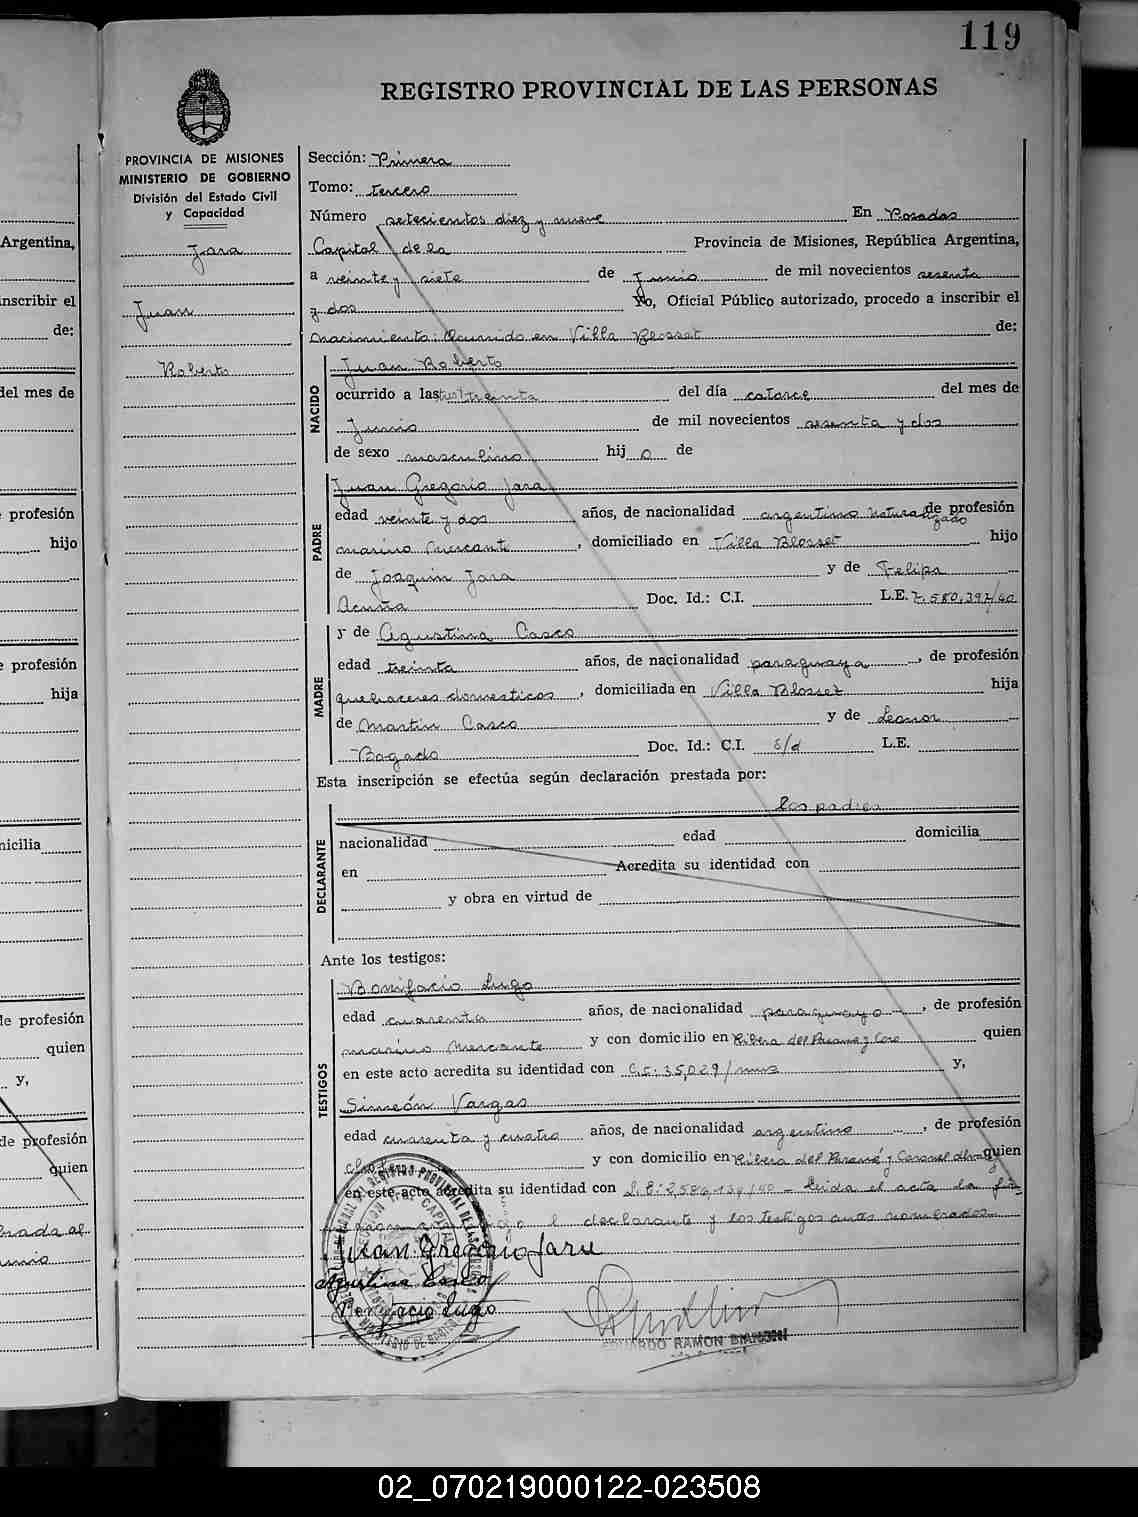 119
REGISTRO PROVINCIAL DE LAS PERSONAS
PROVINCIA DE MISIONES
MINISTERIO DE GOBIERNO
División del Estado Civil
y Capacidad
Jara
Juan
Roberto
Sección: Primera
Tomo: tercero
Número setecientos diez y nueve En Posadas
Capital de la Provincia de Misiones, República Argentina,
a veinte y siete de Junio de mil novecientos sesenta
y dos Yo, Oficial Público autorizado, procedo a inscribir el
nacimiento: Ocurrido en Villa Blosset de:
NACIDO
Juan Roberto
ocurrido a las treinta del día catorce del mes de
Junio de mil novecientos sesenta y dos
de sexo masculino hij o de
PADRE
Juan Gregorio Jara
edad veinte y dos años, de nacionalidad argentino naturalizado de profesión
marino mercante, domiciliado en Villa Blosset hijo
de Joaquin Jara y de Felipa
Acuña Doc. Id.: C.I. L.E. 7.580.397/40
MADRE
y de Agustina Casco
edad treinta años, de nacionalidad paraguaya, de profesión
quehaceres domesticos, domiciliada en Villa Blosset hija
de Martin Casco y de Leonor
Bogado Doc. Id.: C.I. s/d L.E.
Esta inscripción se efectúa según declaración prestada por:
los padres
DECLARANTE
nacionalidad edad domicilia
en Acredita su identidad con
y obra en virtud de
Ante los testigos:
TESTIGOS
Bonifacio Lugo
edad cuarenta años, de nacionalidad paraguayo, de profesión
marino mercante y con domicilio en Ribera del Parana y quien
en este acto acredita su identidad con C.I. 35,029/mnes y,
Simeón Vargas
edad cuarenta y cuatro años, de nacionalidad argentino, de profesión
y con domicilio en Ribera del Paraná y Coronel quien
en este acto acredita su identidad con Leida el acta la fir
el declarante y los testigos antes nombrados
Juan Gregorio Jara
Agustina Casco
Bonifacio Lugo
EDUARDO RAMON
Argentina,
inscribir el
de:
del mes de
profesión
hijo
profesión
hija
micilia
de profesión
quien
y,
de profesión
quien
02_070219000122-023508